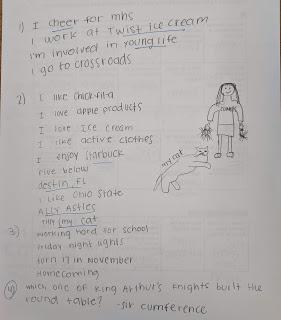 1) I cheer for mhs
I work at Twist ice cream
i'm involved in young life
I go to crossroads
2) I like chick-fil-a
I love apple products
I love Ice cream
I like active clothes
I enjoy Starbuck
five below
destin, FL
I like Ohio State
Ally Astles
my cat
my cat
3) working hard for school
Friday night lights
turn 17 in November
Homecoming
4) which one of King Arthur's knights built the
round table? -sir cumference